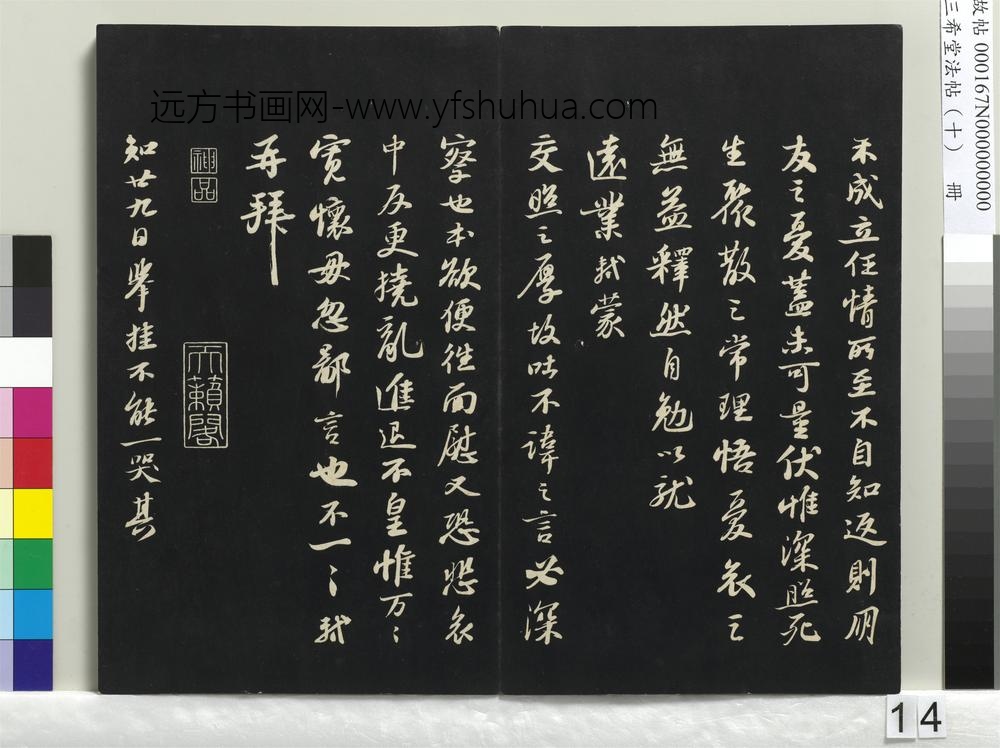 禾成立任情所至不自知返則朋
友之憂蓋未可量伏惟深照死
生聚散之常理悟憂哀之
無益釋然自勉以就
遠業軾蒙
交照之厚故吐不諱之言必深
察也本欲便往面慰又恐悲哀
中反更撓亂進退不皇惟萬萬
寬懷毋忽鄙言也不一一軾
再拜
神品
天籟閣
知廿九日舉挂不能一哭其
远方书画网-www.yfshuhua.com
故帖 000167N000000000
三希堂法帖（十） 冊
14